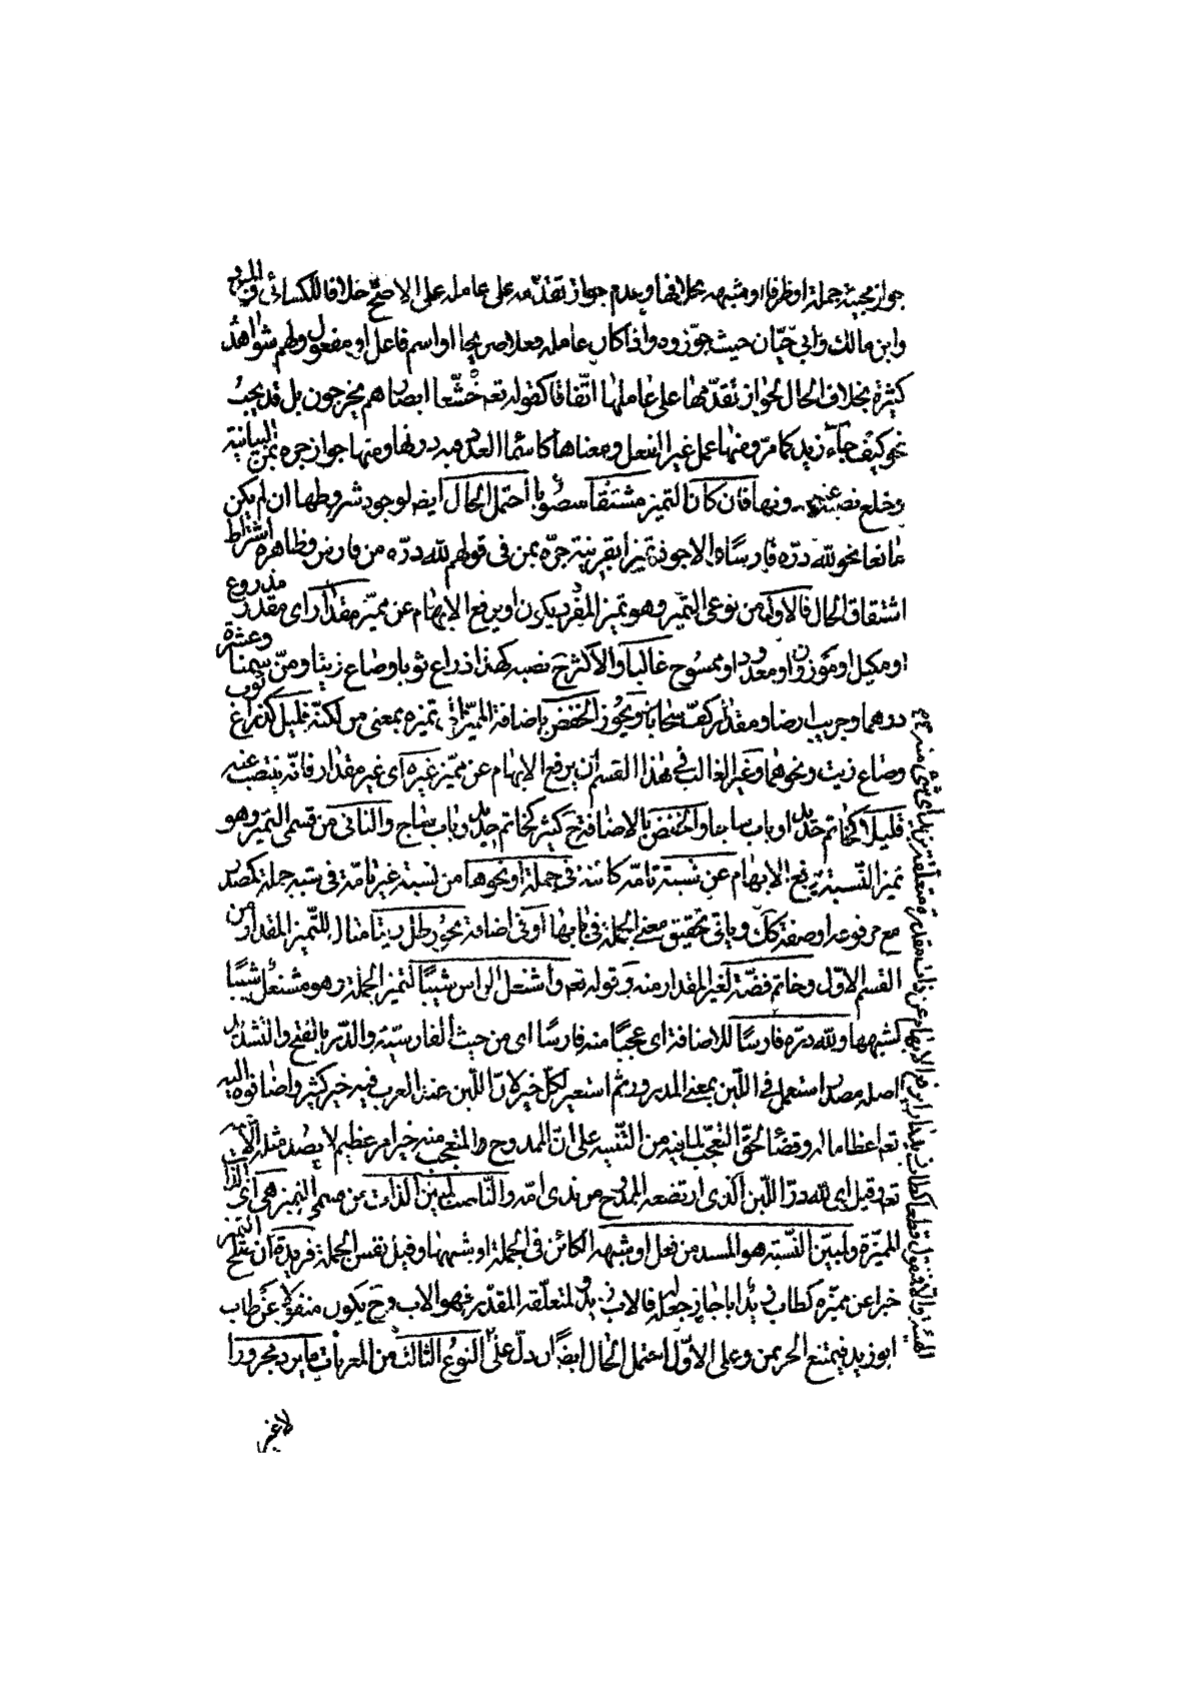 جواز مجيئه جملة او ظرفا او مشبهه بخلافها وبعدم جواز تقدّمه على عامله على الاصحّ خلافا للكسائى والمبرد
وابن مالك وابي حيّان حيث جوّزوه واذا كان عامله فعلا صريحا او اسم فاعل او مفعول ولهم شواهد
كثيرة بخلاف الحال لجواز تقدّمها على عاملها اتّفاقا كقوله تعه خشّعا ابصارهم يخرجون بل قد يجب
نحو كيف جاء زيد كما مرّ ومنها عمل غير الفعل ومعناها كاسماء العدد فيه دونها ومنها جواز جره بمن البيانية
وخلع نصبه عنه دونها فان كان التميز مشتقا منصوبا احتمل الحال ايض لوجود شروطها ان لم يكن
مانعا نحو لله درّه فارسًا والاجود تميزا بقرينة جرّه بمن فى قولهم لله درّه من فارس وظاهره اشتراط
اشتقاق الحال فالاوّل من نوعى التميز وهو تميز المفرد يكون او يرفع الابهام عن مميّز مقدار اى مقدر مذروع
او مكيل او موزون او معدود او ممسوح غالبا والاكثر ح نصبه كهذا ذراع ثوبا وصاع زيتا ومنّ سمنا وعشرة
درهما وجريب ارضا ومقدار كفّ سحابا ويجوز الخفض باضافة المميّز الى تميزه بمعنى من لكنّه قليل كذراع ثوب
وصاع زيت ونحوهما وغير الغالب فى هذا القسم ان يرفع الابهام عن مميّز غيره اى غير مقدار فانّه ينتصب عنه
قليلا كخاتم حديدا وباب ساجا والخفض بالاضافة ح كثير كخاتم حديد وباب ساج والثانى من قسمى التميز وهو
تميز النّسبة يرفع الابهام عن نسبة تامّة كائنة فى جملة او نحوها من نسبة غير تامّة فى شبه جملة كمصدر
مع مرفوعه او صفة كك وياتى تحقيق معنى الجملة فى بابها او فى اضافة نحو رطل زيتا مثال للتّميز المقدار من
القسم الاوّل وخاتم فضّة لغير المقدار منه وقوله تعه واشتعل الراس شيبًا لتميز الجملة وهو مشتعل شيبًا
لشبهها ولله درّه فارسًا للاضافة اى عجبًا منه فارسًا اى من حيث الفارسيّة والدّر بالفتح والتشديد
اصله مصدر استعمل فى اللّبن بمعنى المدرور ثم استعير لكلّ خير لانّ اللّبن عند العرب فيه خير كثير واضافوه اليه
تعه اعظاما له وقضاءً لحقّ التعجّب لما فيه من التّنبيه على انّ الممدوح والمتعجب منه خير امر عظيم لا يصدر مثله الّا من
تعه وقيل اى لله درّ اللّبن الّذى ارتضعه الممدوح من ثدى امّه والنّاصب لمبيّن الذات من قسمى التميز هى اى الذّات
المميّزة ولمبيّن النّسبة هو المسند من فعل او شبهه الكائن فى الجملة او شبهها وقيل نفس الجملة فريدة ان صلح التميز
خبرا عن مميّزه كطاب زيد ابا جاز جعله له فالاب زيد ولمتعلّقه المقدّر فهو الاب وح يكون منقولا عن طاب
ابو زيد فيمتنع الجر بمن وعلى الاوّل احتمل الحال ايضًا ان دلّ على النوع الثالث من المعربات ما يرد مجرورا
لا غير